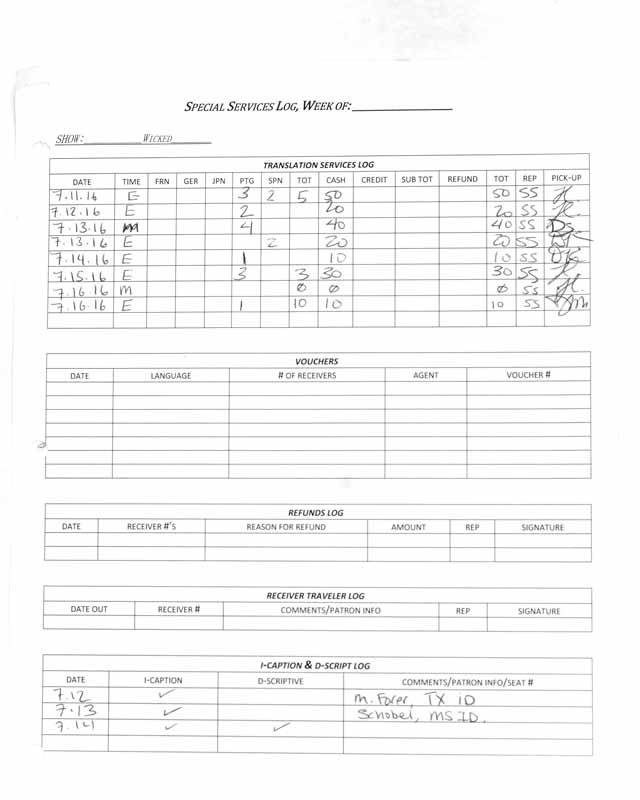 SPECIAL SERVICES LOG, WEEK OF:
SHOW: WICKED
TRANSLATION SERVICES LOG
DATE TIME FRN GER JPN PTG SPN TOT CASH CREDIT SUB TOT REFUND TOT REP PICK-UP
7.11.16 E 3 2 5 50 50 SS
7.12.16 E 2 20 20 SS
7.13.16 M 4 40 40 SS
7.13.16 E 2 20 20 SS
7.14.16 E 1 10 10 SS
7.15.16 E 3 3 30 30 SS
7.16.16 M Ø Ø Ø SS
7.16.16 E 1 10 10 10 SS
VOUCHERS
DATE LANGUAGE # OF RECEIVERS AGENT VOUCHER #
REFUNDS LOG
DATE RECEIVER #'S REASON FOR REFUND AMOUNT REP SIGNATURE
RECEIVER TRAVELER LOG
DATE OUT RECEIVER # COMMENTS/PATRON INFO REP SIGNATURE
I-CAPTION & D-SCRIPT LOG
DATE I-CAPTION D-SCRIPTIVE COMMENTS/PATRON INFO/SEAT #
7.12 ✓ M. Forer, TX ID
7.13 ✓ Schobel, MS ID.
7.14 ✓ ✓